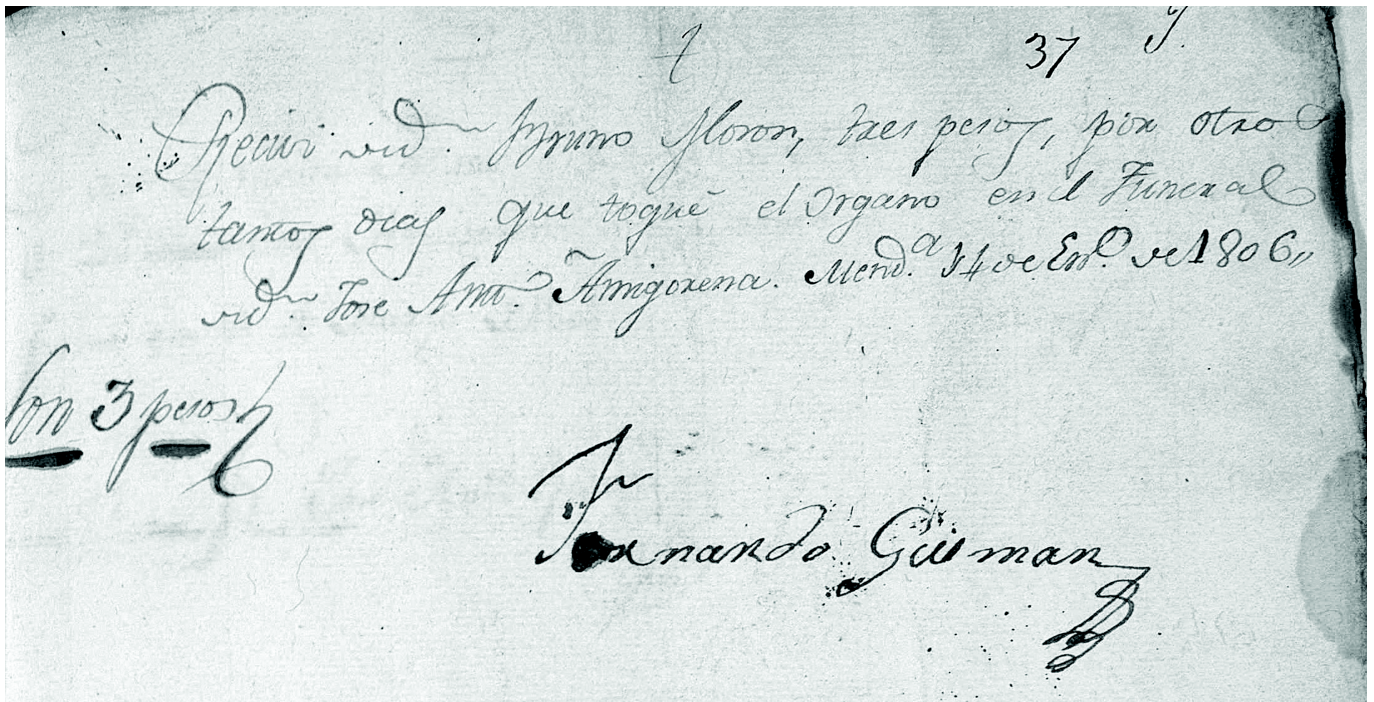 37
Recivi de Dn. Bruno Moron, tres pesos, por otro
tantos dias que toqué el Organo en el Funeral
de Dn. Jose Anto. Amigorena. Mend.a 14 de En.o de 1806,,
Son 3 pesos
Fernando Gusman